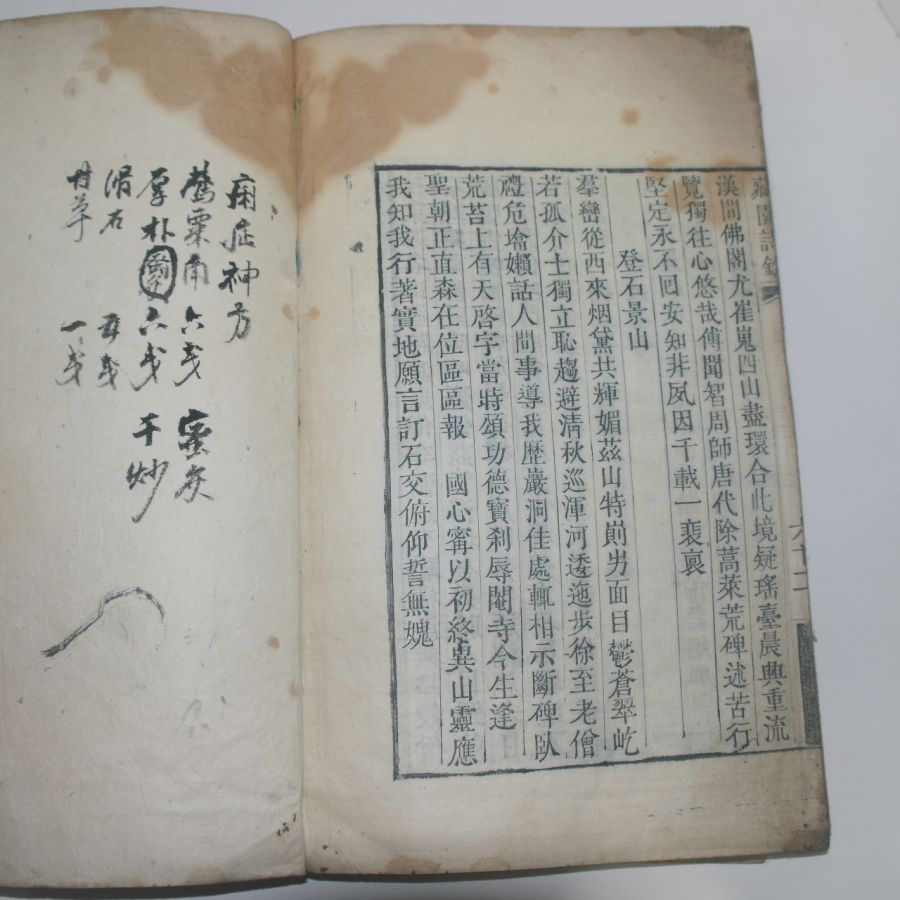 漢間佛閣尤崔嵬四山盡環合此境疑瑤臺晨興重流
覽獨往心悠哉傅聞智周師唐代除蒿萊荒碑述苦行
堅定永不回安知非夙因千載一裵褱
登石景山
羣巒從西來烟黛共輝媚茲山特剏男面目鬱蒼翠屹
若孤介士獨立恥趨避清秋巡渾河透迤步徐至老僧
禮危墖嬾話人間事導我歷巖洞佳處輒相示斷碑臥
荒苔上有天啓字當時頌功德寶刹辱閹寺今生逢
聖朝正直森在位區區報　國心寗以初終異山靈應
我知我行著實地願言訂石交俯仰誓無媿
神方
粟
厚朴 六 干炒
滑石
甘草 一